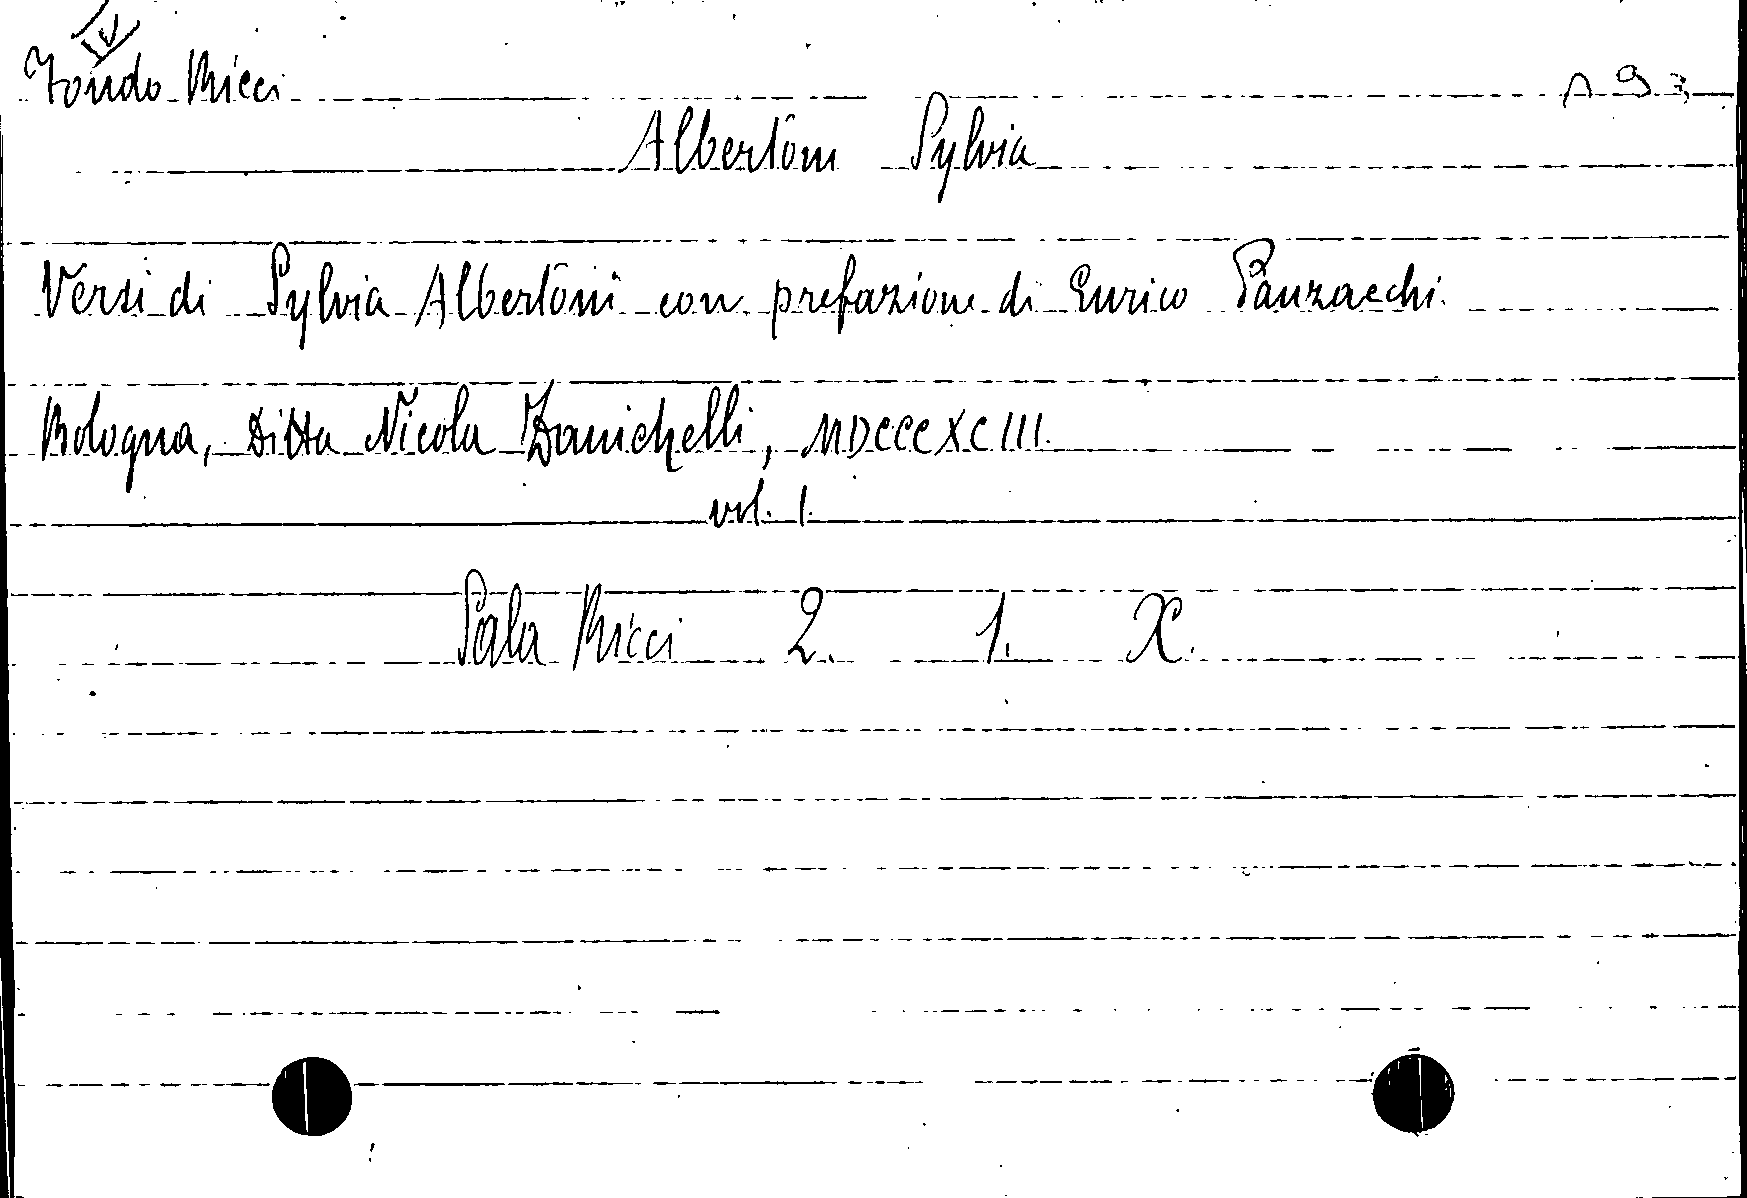 IV
Fondo Ricci
Albertoni Sylvia
Versi di Sylvia Albertoni con prefazione di Enrico Panzacchi.
Bologna, Ditta Nicola Zanichelli, MDCCCXCIII.
vol. 1.
Sala Ricci 2. 1. X.